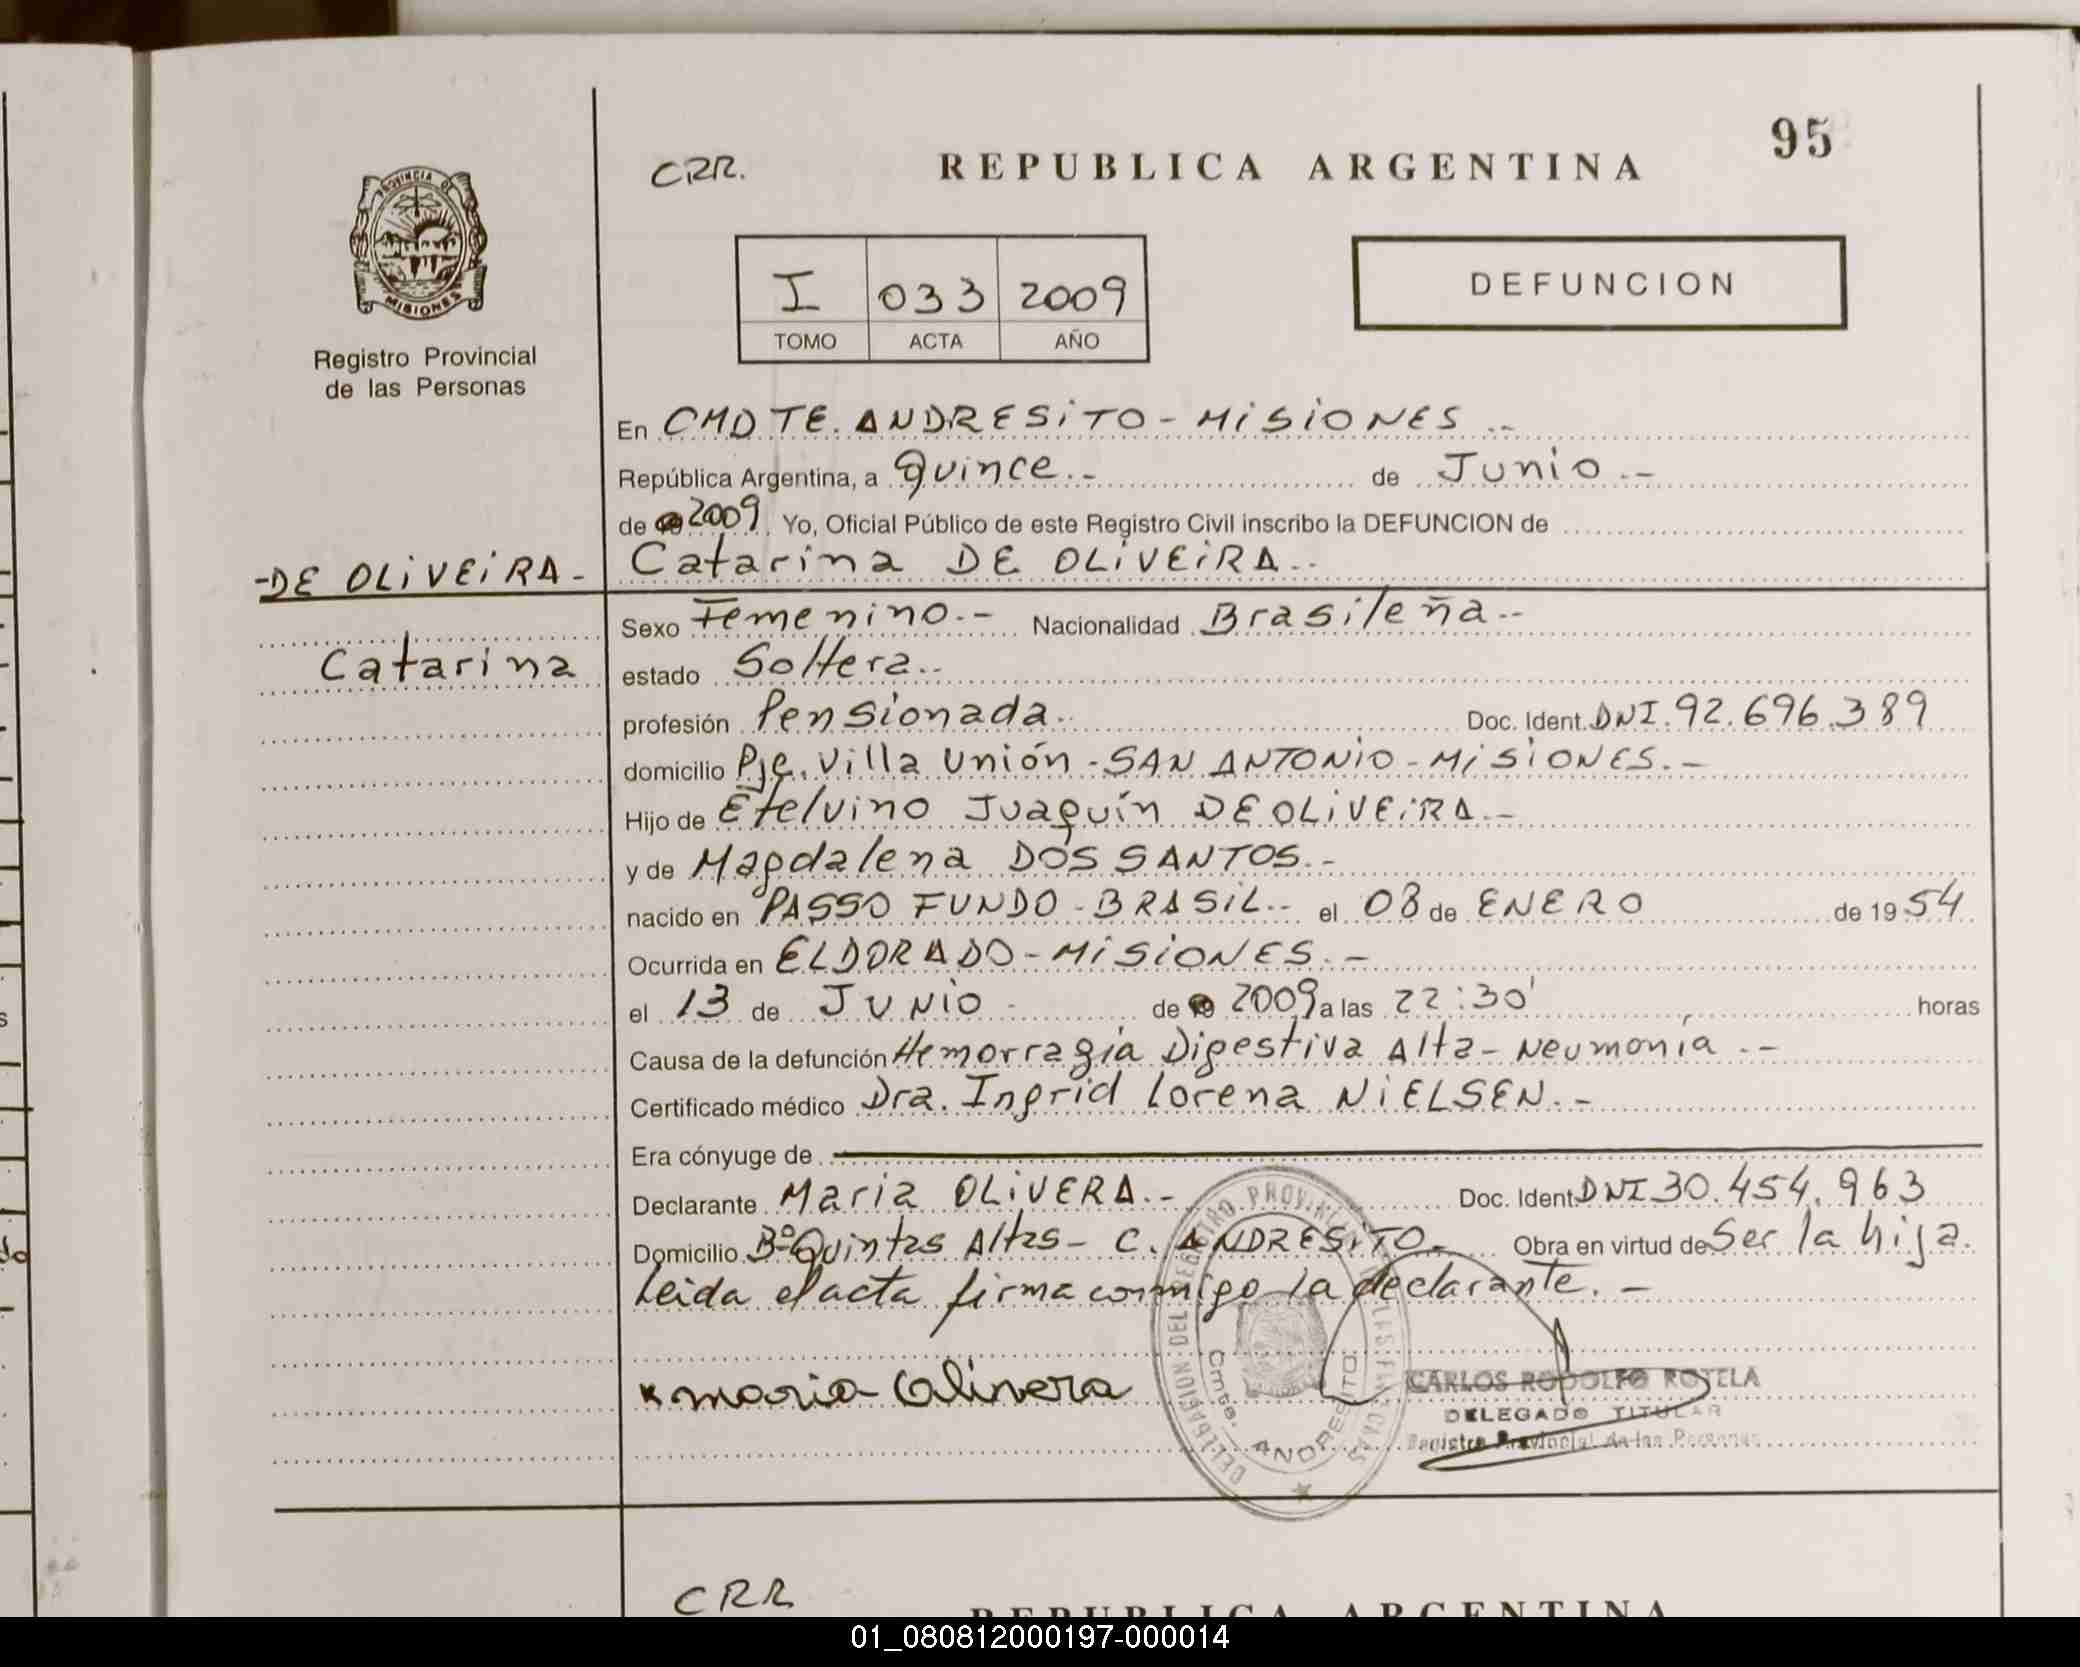 95
CRR.
REPUBLICA ARGENTINA
PROVINCIA DE
MISIONES
Registro Provincial
de las Personas
I 033 2009
TOMO ACTA AÑO
DEFUNCION
En CMDTE. ANDRESITO - MISIONES.-
República Argentina, a Quince.- de Junio.-
de 2009 Yo, Oficial Público de este Registro Civil inscribo la DEFUNCION de
Catarina DE OLIVEIRA.-
-DE OLIVEIRA-
Catarina
Sexo Femenino.- Nacionalidad Brasileña.-
estado Soltera.-
profesión Pensionada.- Doc. Ident. DNI.92.696.389
domicilio Pje. Villa Unión - SAN ANTONIO - MISIONES.-
Hijo de Etelvino Juaquín DE OLIVEIRA.-
y de Magdalena DOS SANTOS.-
nacido en PASSO FUNDO - BRASIL.- el 08 de ENERO de 1954
Ocurrida en ELDORADO - MISIONES.-
el 13 de JUNIO - de 2009 a las 22:30' horas
Causa de la defunción Hemorragia Digestiva Alta - Neumonía.-
Certificado médico Dra. Ingrid Lorena NIELSEN.-
Era cónyuge de
Declarante Maria OLIVERA.- Doc. Ident. DNI 30.454.963
Domicilio Bº Quintas Altas - C. ANDRESITO.- Obra en virtud de Ser la hija.
Leida el acta firma conmigo la declarante.-
maria Olivera
DELEGACION DEL REGISTRO PROVINCIAL DE LAS PERSONAS
Cmte. ANDRESITO
CARLOS RODOLFO ROTELA
DELEGADO TITULAR
Registro Provincial de las Personas
CRR
REPUBLICA ARGENTINA
01_080812000197-000014